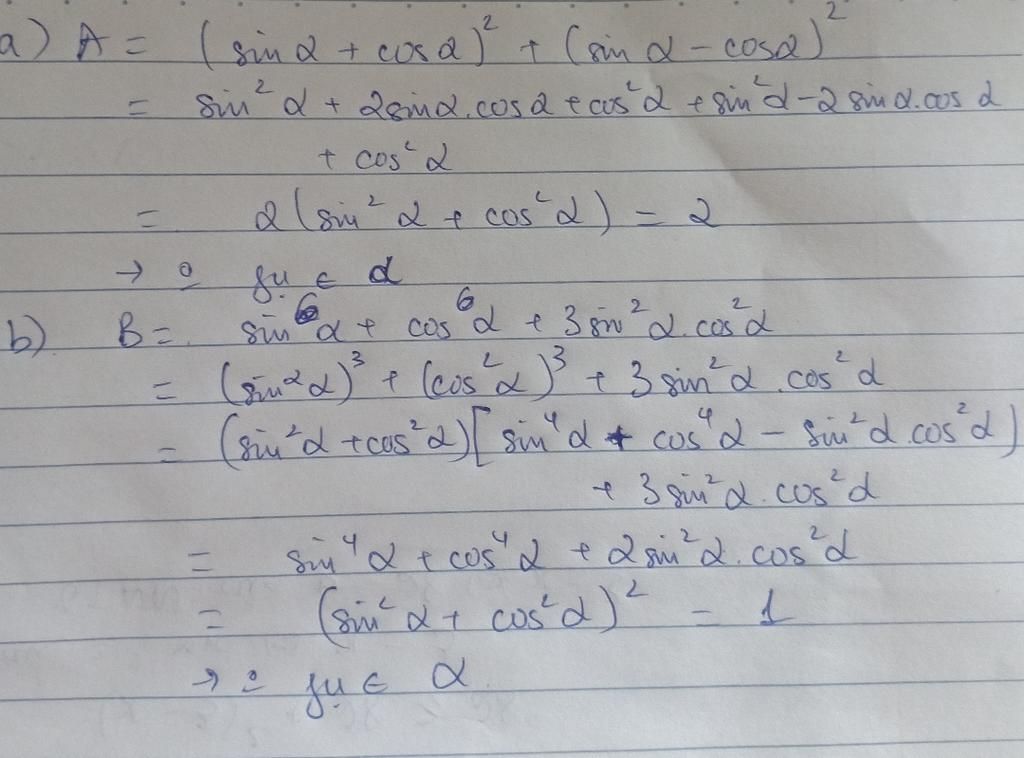 a) A = (sin α + cos α)² + (sin α - cos α)²
= sin² α + 2 sin α . cos α + cos² α + sin² α - 2 sin α . cos α
+ cos² α
= 2 (sin² α + cos² α) = 2
→ o ∈ α
b) B = sin⁶ α + cos⁶ α + 3 sin² α . cos² α
= (sin² α)³ + (cos² α)³ + 3 sin² α . cos² α
= (sin² α + cos² α) [ sin⁴ α + cos⁴ α - sin² α . cos² α )
+ 3 sin² α . cos² α
= sin⁴ α + cos⁴ α + 2 sin² α . cos² α
= (sin² α + cos² α)² = 1
→ o ∈ α